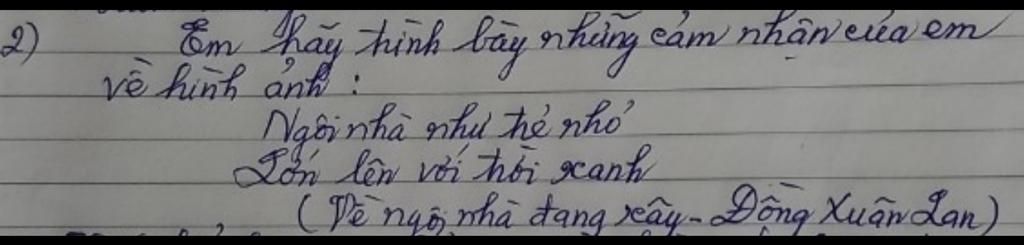 2) Em hãy trình bày những cảm nhận của em
về hình ảnh :
Ngôi nhà như trẻ nhỏ
Lớn lên với trời xanh
( Về ngôi nhà đang xây - Đồng Xuân Lan )